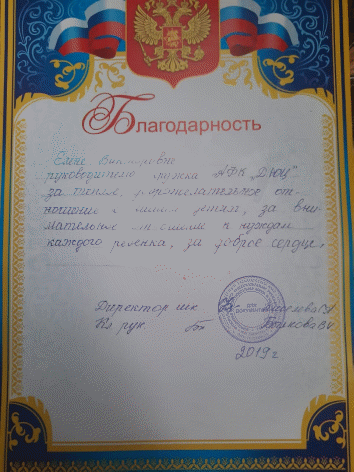 Благодарность
Елене Викторовне
руководителю кружка АФК "ДЮЦ"
за теплое, доброжелательное от-
ношение к нашим детям, за вни-
мательное отношение к нуждам
каждого ребенка, за доброе сердце.
Директор шк
Кл рук
2019 г